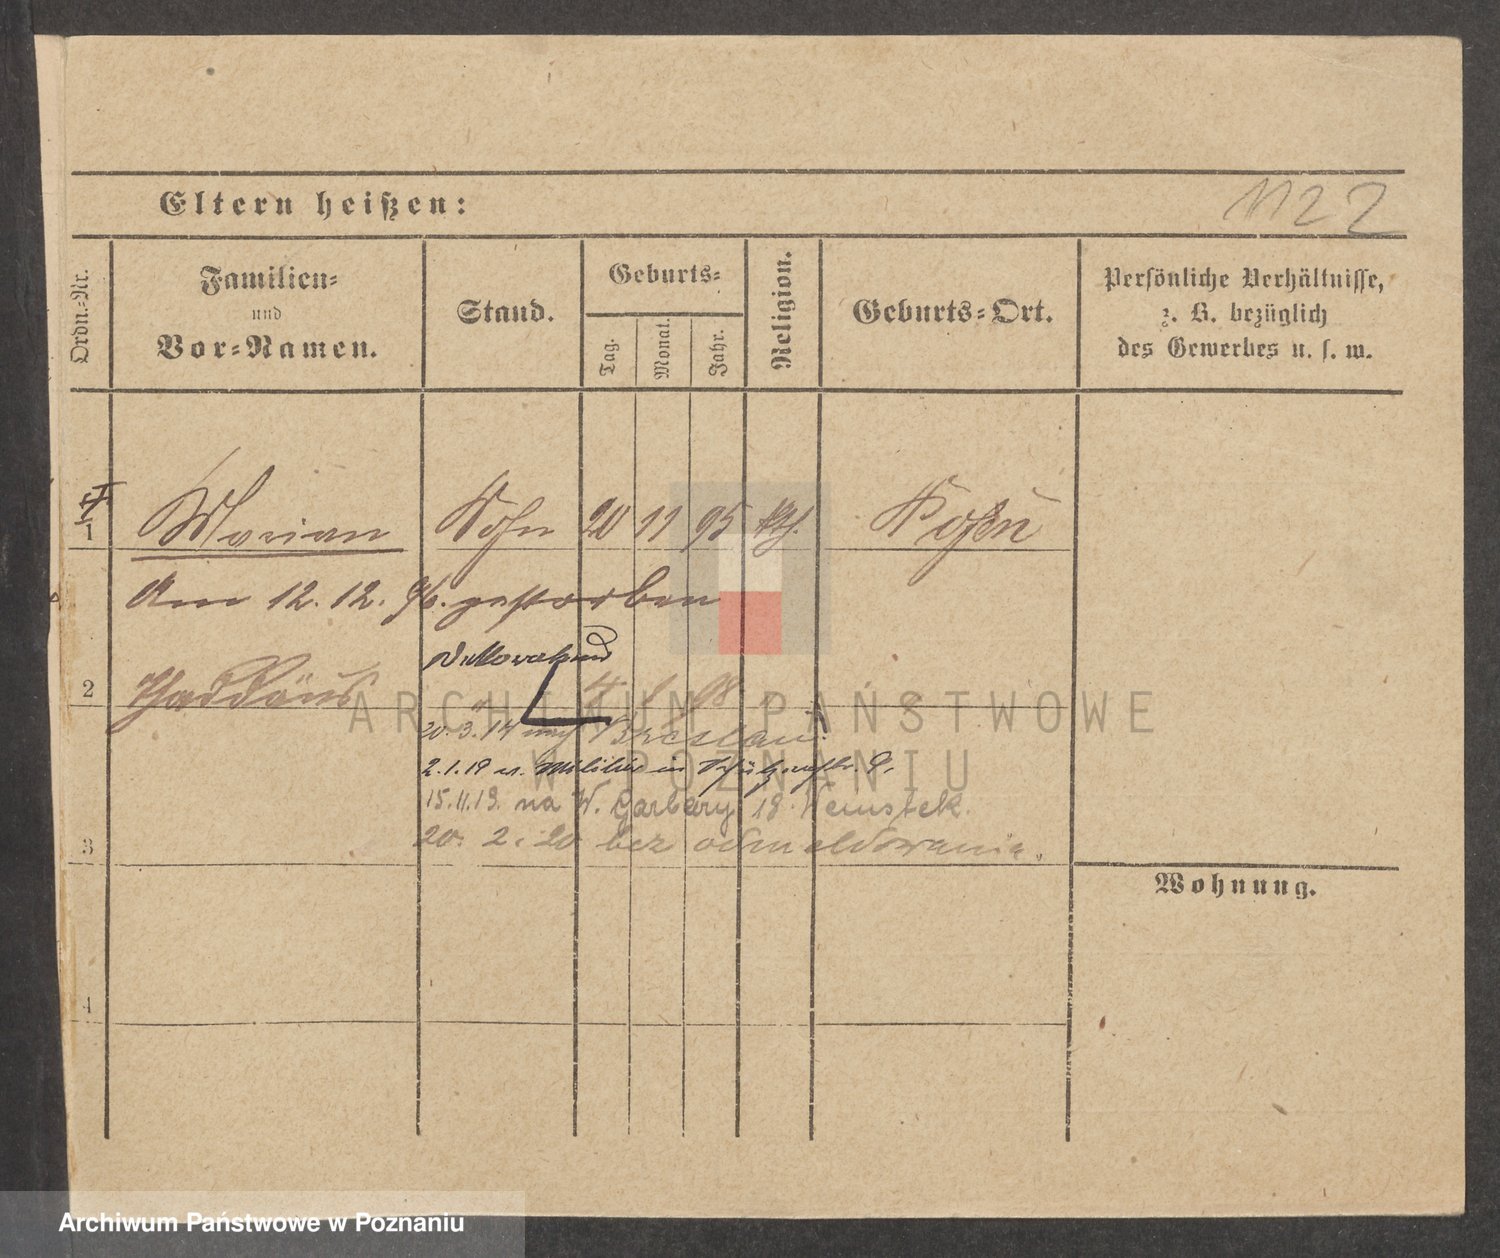 1122
Eltern heißen:
Ordn.-Nr.
Familien-
und
Vor-Namen.
Stand.
Geburts-
Tag.
Monat.
Jahr.
Religion.
Geburts-Ort.
Persönliche Verhältnisse,
z. B. bezüglich
des Gewerbes u. s. w.
1 Marian Sohn 20 11 95 kth. Posen
Am 12. 12. 96. gestorben
2 Thaddäus 4 98
20.3.14 nach Breslau.
2.1.19 v. Militär in
15.11.19. na W. Garbary 18
3 20. 2. 20 bez odmeldowania.
Wohnung.
4
ARCHIWUM PAŃSTWOWE
W POZNANIU
Archiwum Państwowe w Poznaniu